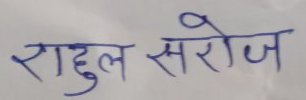 राहुल सरोज